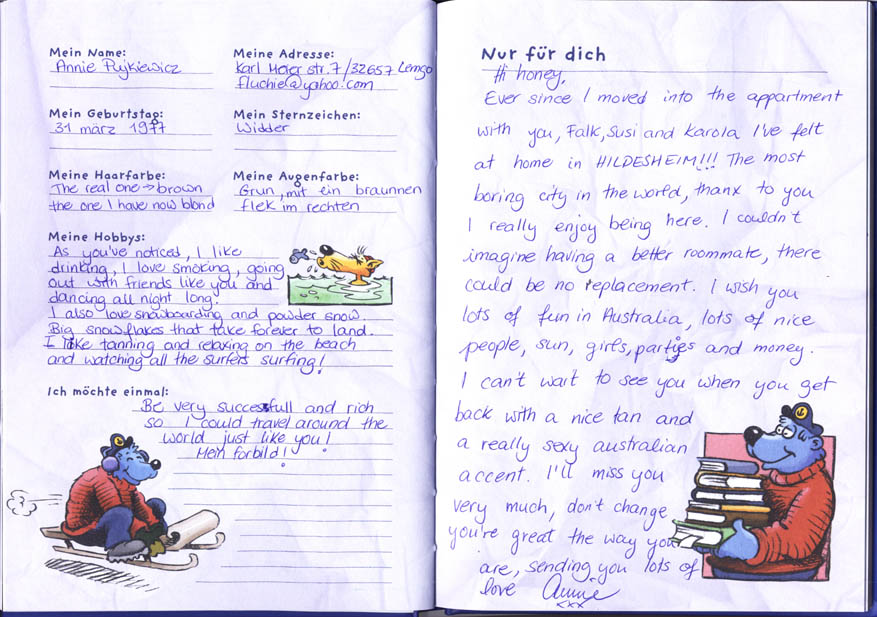 Mein Name:
Annie Pujkiewicz
Meine Adresse:
Karl Meier str. 7/32657 Lemgo
fluchie@yahoo.com
Mein Geburtstag:
31 märz 1977
Mein Sternzeichen:
Widder
Meine Haarfarbe:
The real one → brown
the one I have now blond
Meine Augenfarbe:
Grun, mit ein braunnen
flek im rechten
Meine Hobbys:
As you've noticed, I like
drinking, I love smoking, going
out with friends like you and
dancing all night long.
I also love snowboarding and powder snow.
Big snowflakes that take forever to land.
I like tanning and relaxing on the beach
and watching all the surfers surfing!
Ich möchte einmal:
Be very succesfull and rich
so I could travel around the
world just like you!
Mein forbild!!
Nur für dich
Hi honey,
Ever since I moved into the appartment
with you, Falk, Susi and Karola I've felt
at home in HILDESHEIM!!! The most
boring city in the world, thanx to you
I really enjoy being here. I couldn't
imagine having a better roommate, there
could be no replacement. I wish you
lots of fun in Australia, lots of nice
people, sun, girls, parties and money.
I can't wait to see you when you get
back with a nice tan and
a really sexy australian
accent. I'll miss you
very much, don't change
you're great the way you
are, sending you lots of
love Annie
xxx